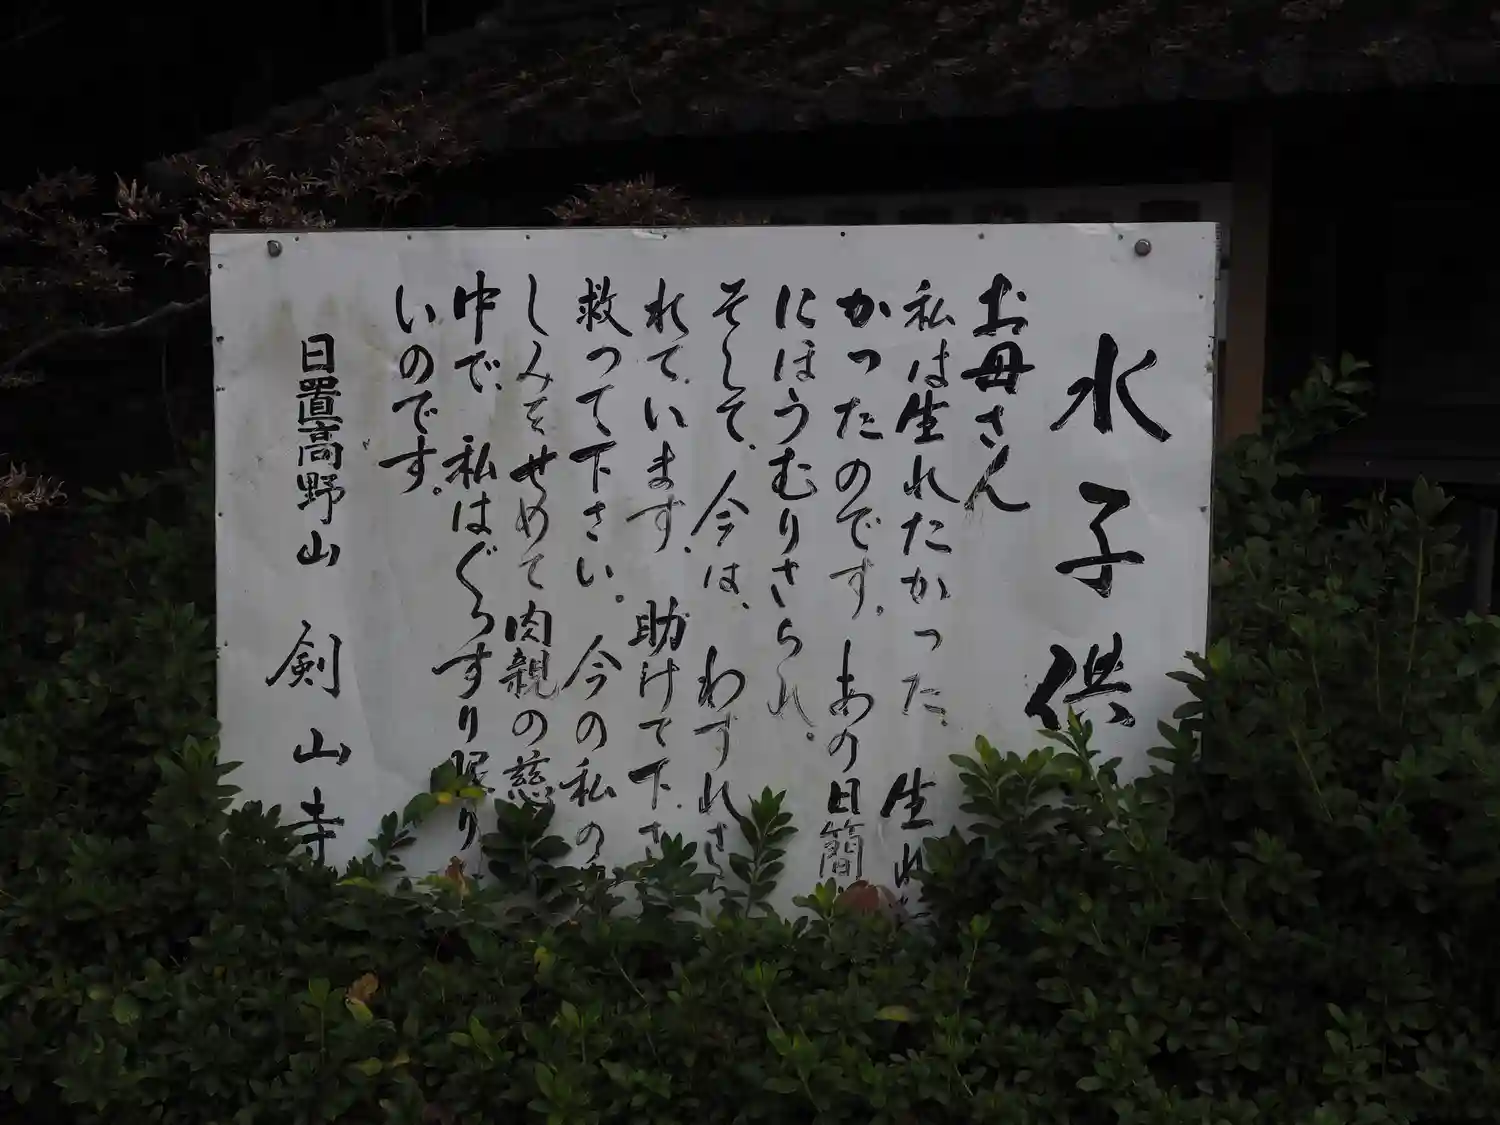 水子供
お母さん
私は生れたかった。生れ
かったのです。あの日簡
にほうむりさられ。
そして、今は、わすれさ
れています。助けて下さ
救って下さい。今の私の
しみをせめて肉親の慈
中で、私はぐっすり眠り
いのです。
日置高野山 剣山寺